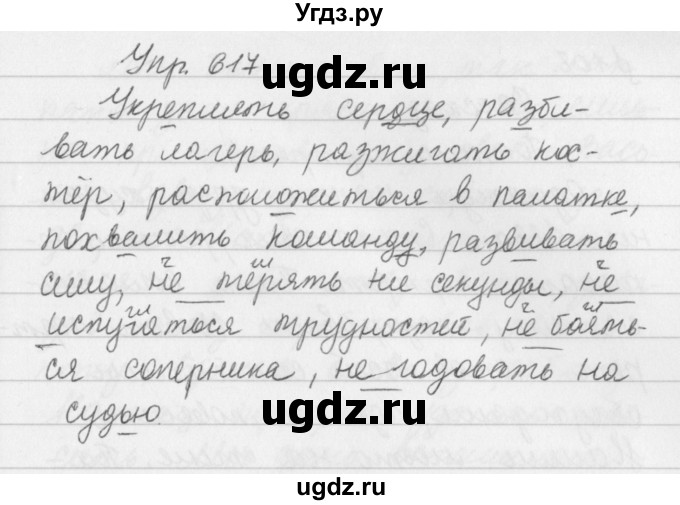 Угдз.ру
Упр. 617
ugdz.ru
Укреплять сердце, разби-
вать лагерь, разжигать кос-
тёр, расположиться в палатке,
похвалить команду, развивать
ugdz.ru
силу, не терять ни секунды, не
ч гл ч
испугаться трудностей, не боять-
гл ч гл
ся соперника, негодовать на
судью
ugdz.ru
ugdz.ru